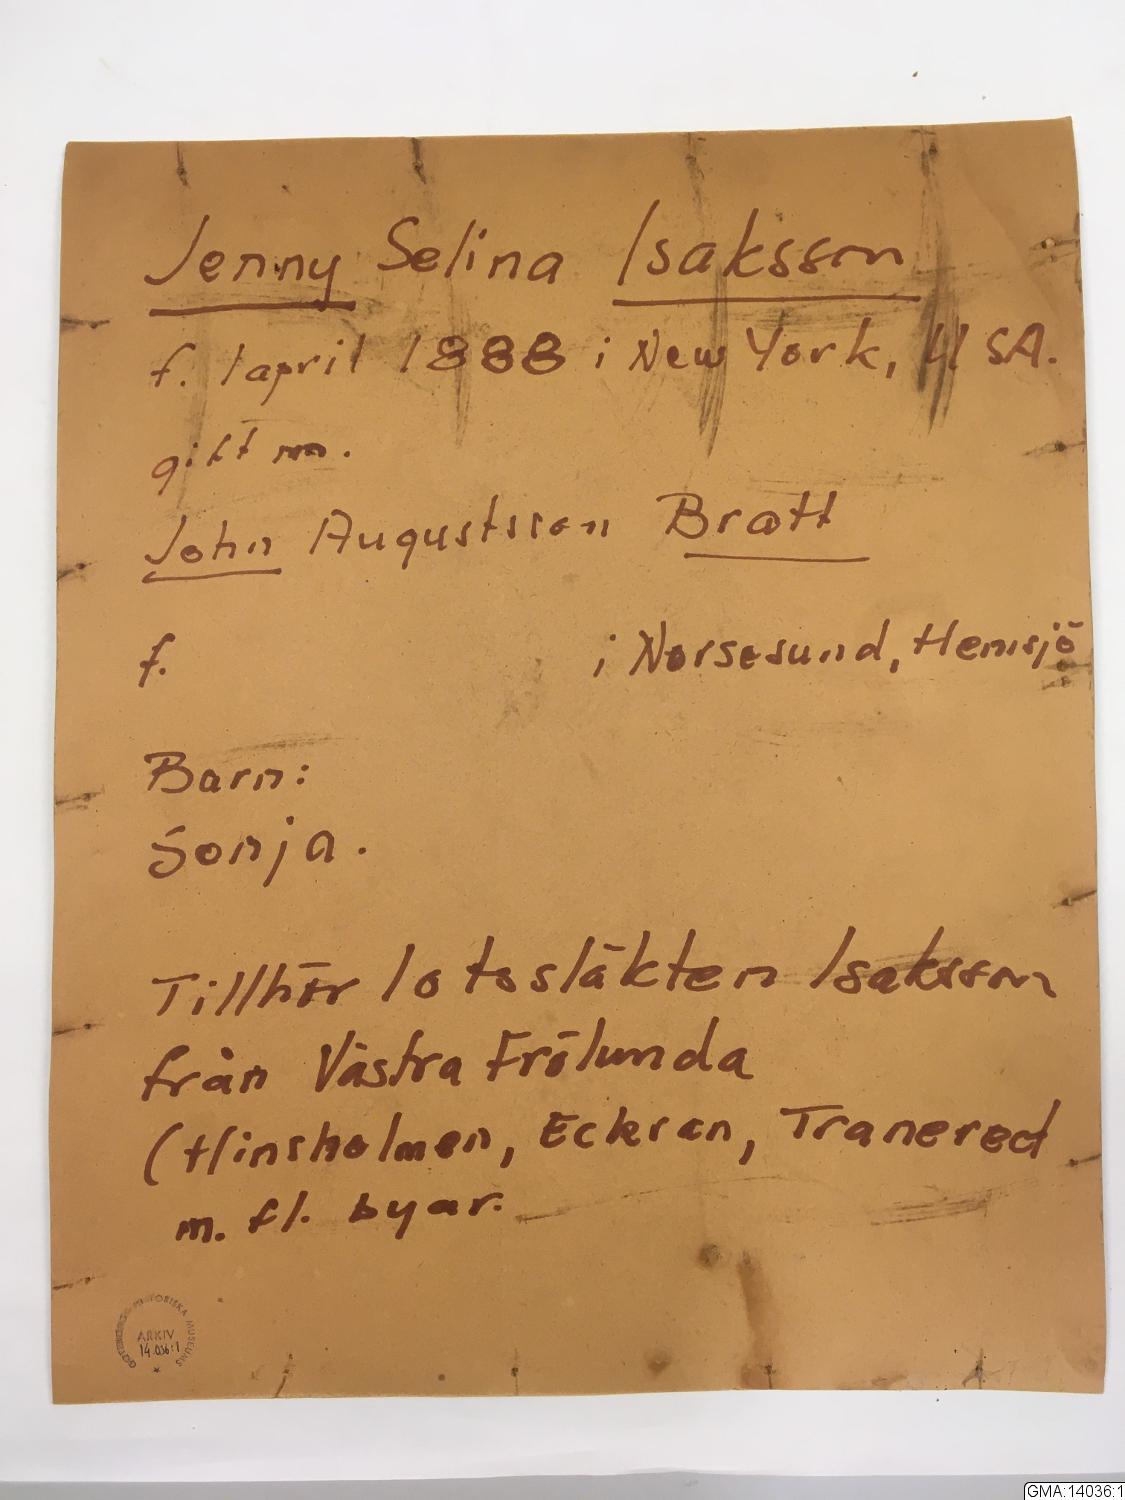 Jenny Selina Isaksson
f. 1 april 1888 i New York, USA.
gift m.
John Augustsson Bratt
f. i Norsesund, Hemsjö
Barn:
Sonja.
Tillhör lotssläkten Isaksson
från Västra Frölunda
(Hinsholmen, Eckran, Tranered
m. fl. byar.
GÖTEBORGS HISTORISKA MUSEUMS
ARKIV
14.036:1
GMA:14036:1